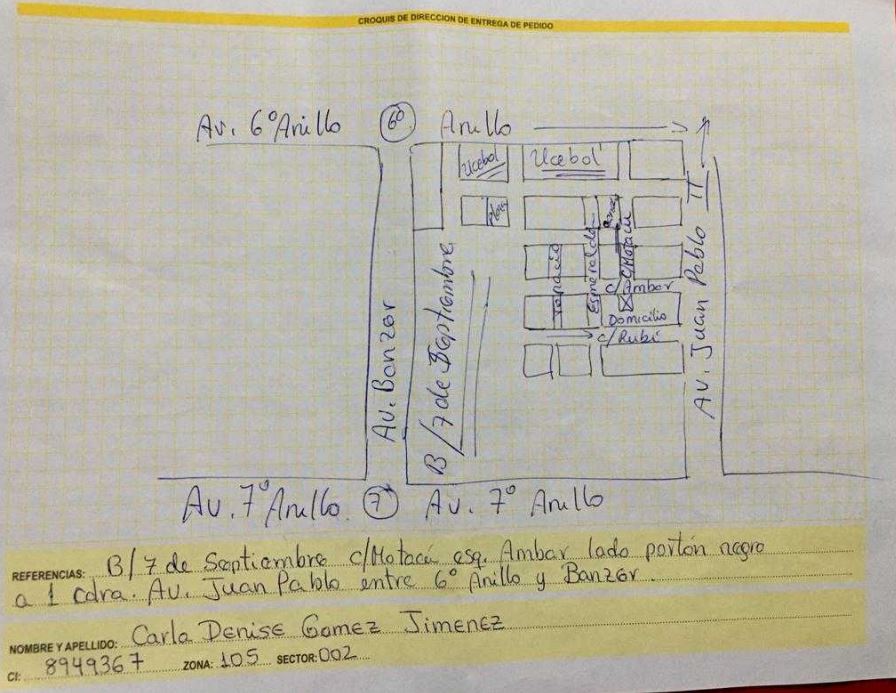 CROQUIS DE DIRECCION DE ENTREGA DE PEDIDO
Av. 6º Anillo 6º Anillo
Ucebol Ucebol
II
Av. Juan Pablo
Topacio
Esmeralda
C/Motacu
C/Ambar
Domicilio
C/Rubí
B/7 de Septiembre
Av. Banzer
Av. 7º Anillo 7º Av. 7º Anillo
REFERENCIAS: B/7 de Septiembre c/Motacú esq. Ambar lado portón negro
a 1 cdra. Av. Juan Pablo entre 6º Anillo y Banzer.
NOMBRE Y APELLIDO: Carla Denise Gomez Jimenez
CI: 8949367 ZONA: 105 SECTOR: 002